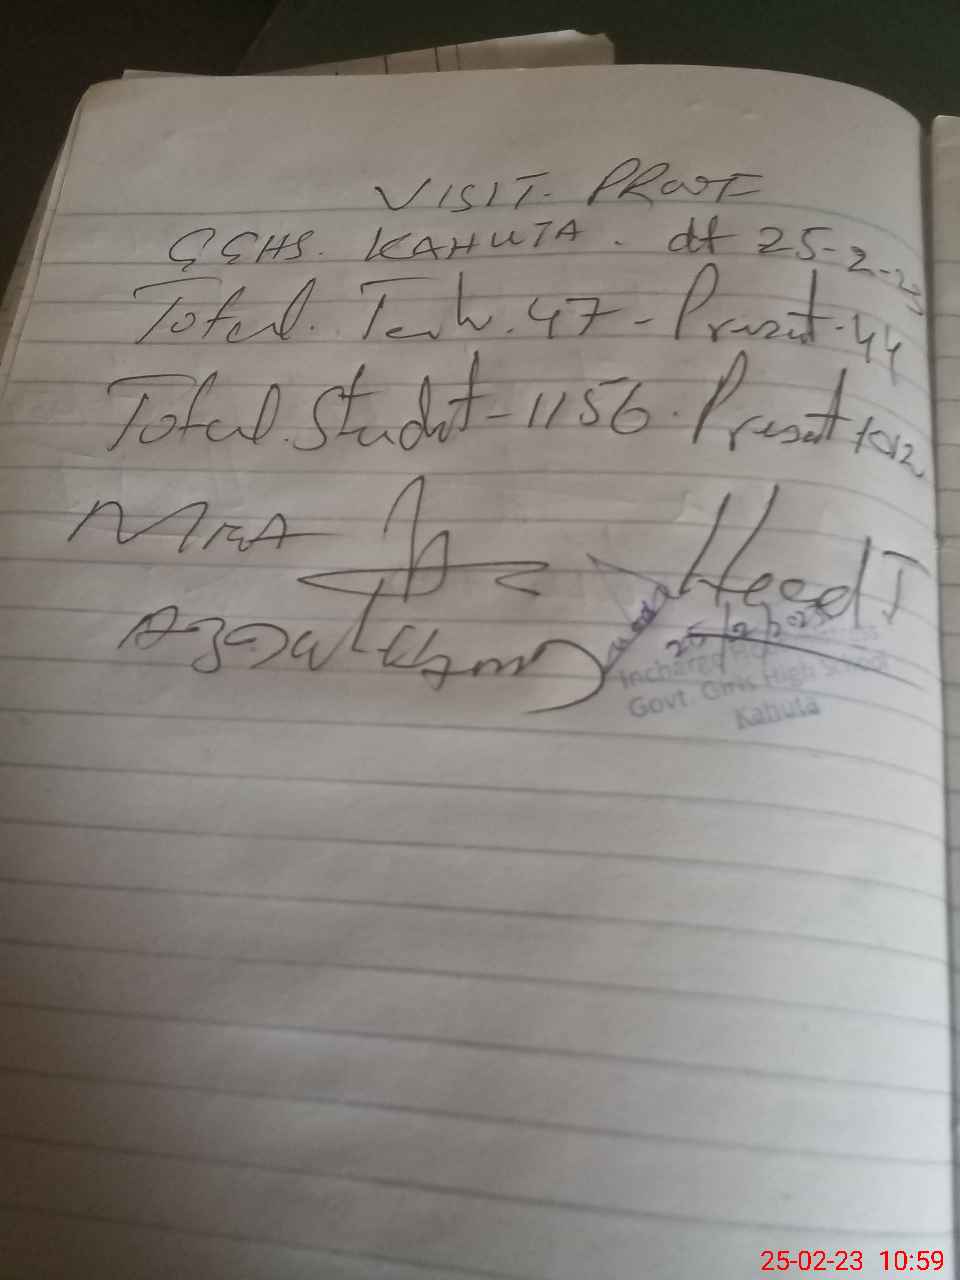 VISIT. PROOF
GGHS. KAHUTA. dt 25-2-23
Total. Teach. 47 - Present. 44
Total. Student - 1156. Present 1012
MEA Head
25/2/2023
Incharge Headmistress
Govt. Girls High School
Kahuta
25-02-23 10:59